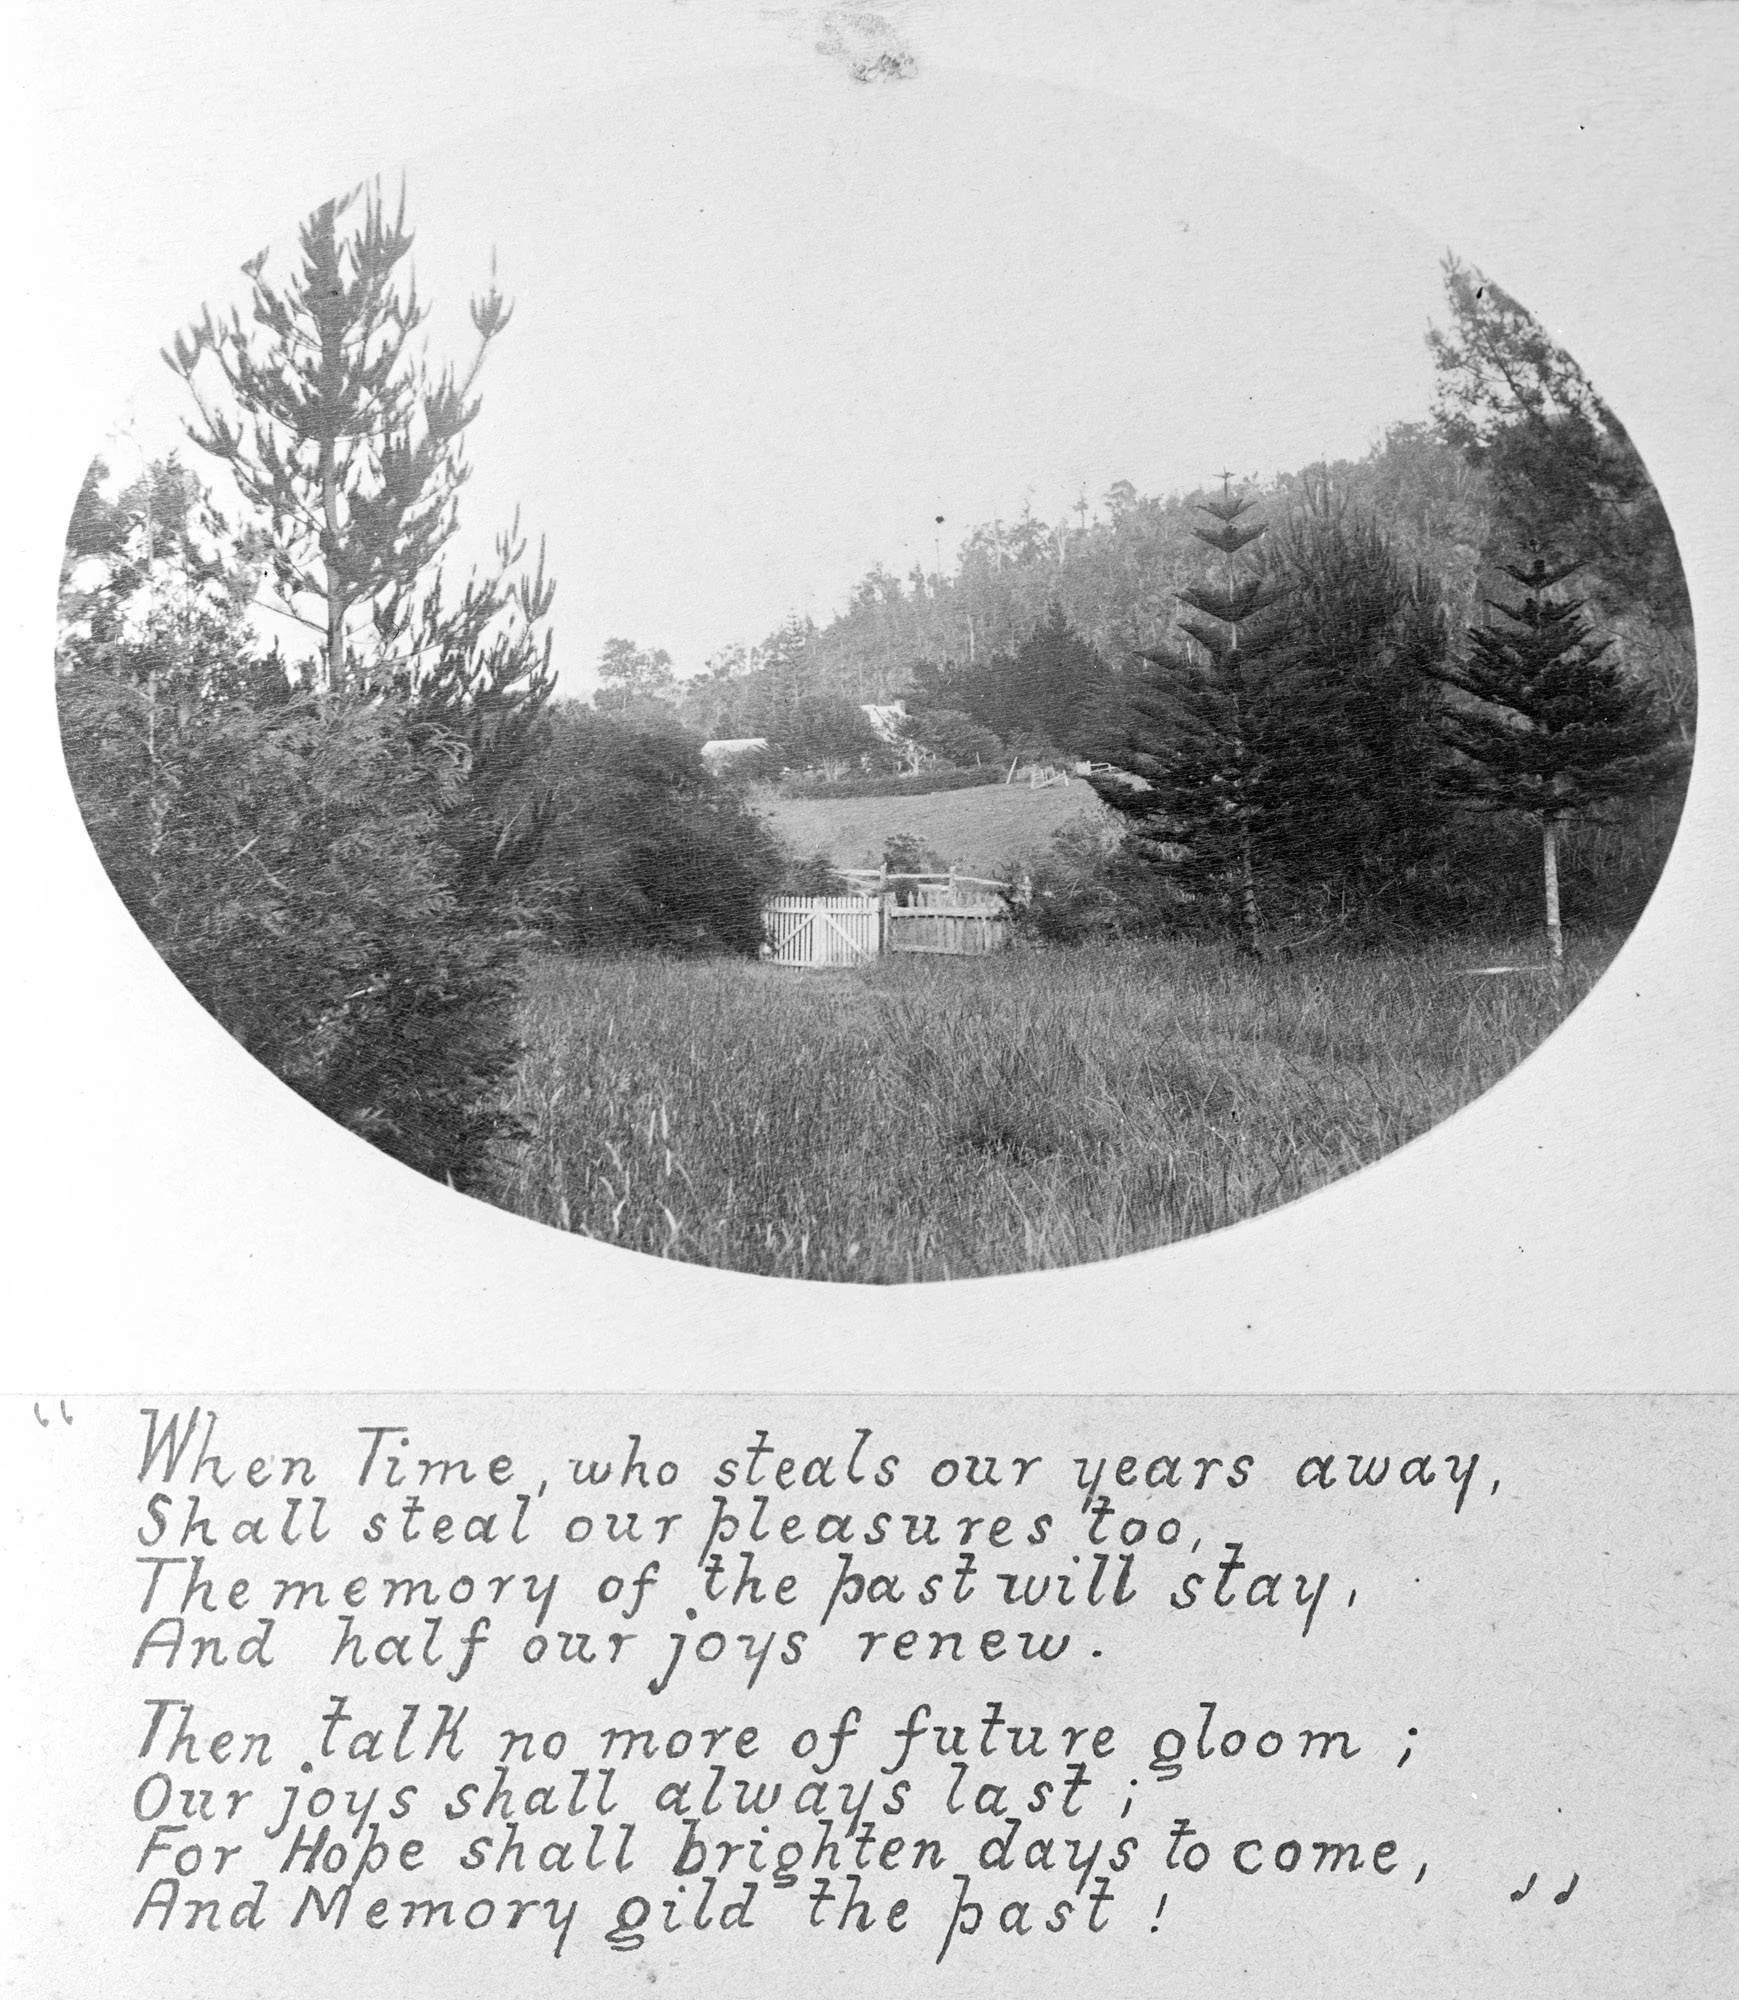 “ When Time, who steals our years away,
Shall steal our pleasures too,
The memory of the past will stay,
And half our joys renew.
Then talk no more of future gloom ;
Our joys shall always last ;
For Hope shall brighten days to come,
And Memory gild the past ! ”